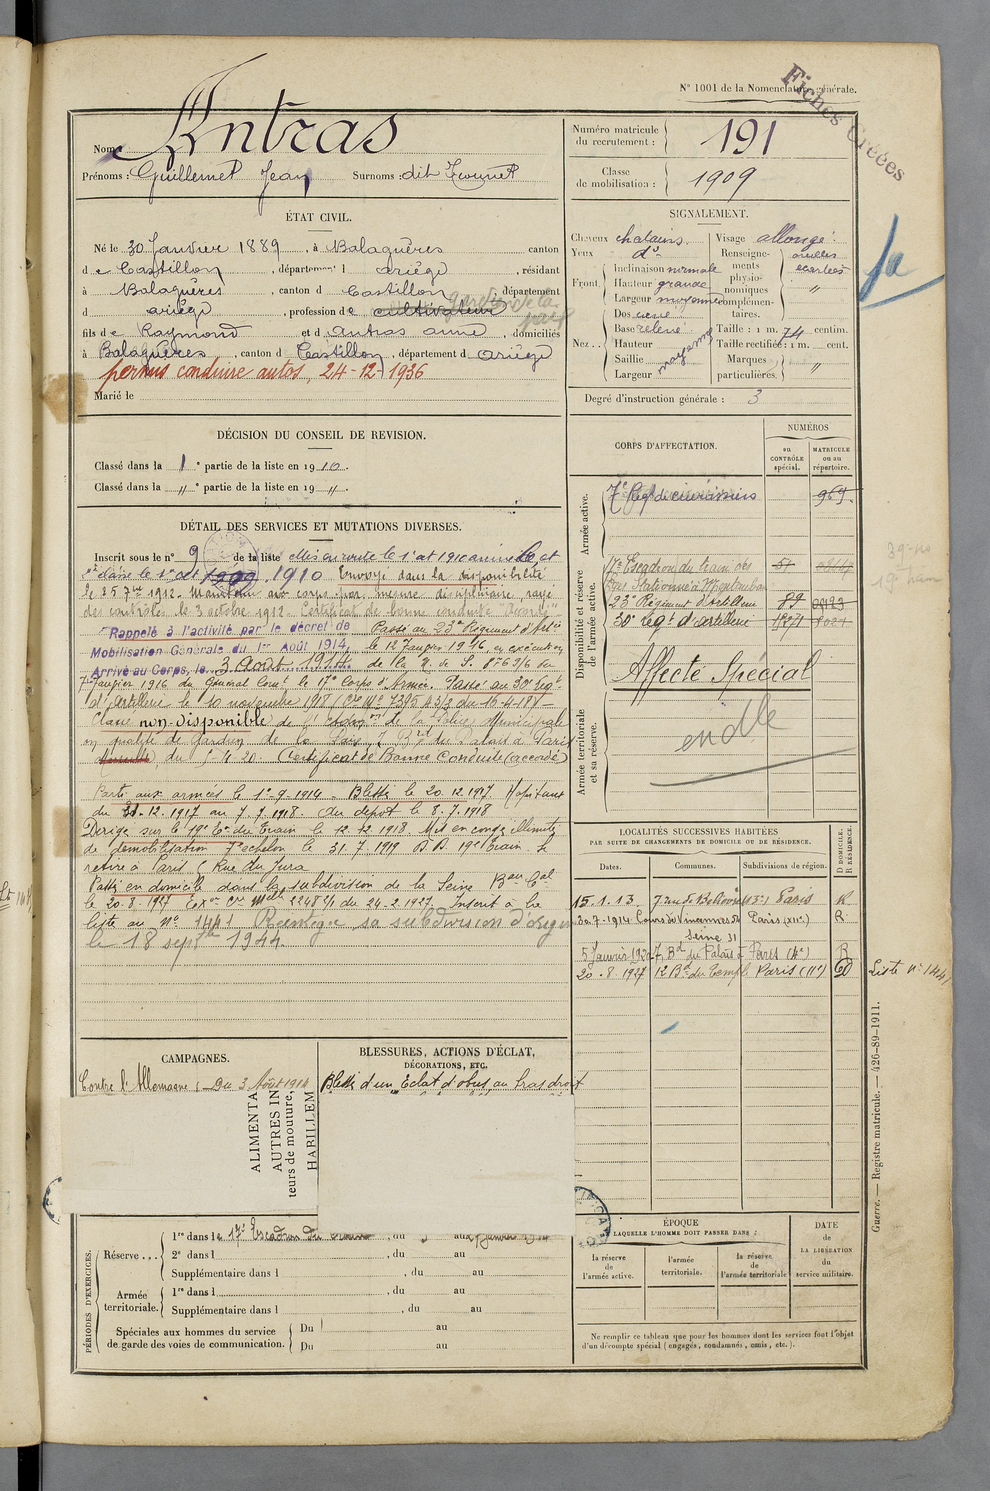 N° 1001 de la Nomenclature générale.
Fiches Créées
Nom : Antras
Prénoms : Guillemet Jean Surnoms : dit
Numéro matricule du recrutement : 191
Classe de mobilisation : 1909
ÉTAT CIVIL.
Né le 30 Janvier 1889, à Balaguères canton
de Castillon, département d ariège, résidant
à Balaguères, canton d Castillon, département
d ariège, profession de cultivateur gardien de la paix
fils de Raymond et d Antras anne, domiciliés
à Balaguères, canton d Castillon, département d ariège
permis conduire autos, 24-12-1936
Marié le
SIGNALEMENT.
Cheveux chatains
Yeux d°
Front. Inclinaison normale
Hauteur grande
Largeur moyenne
Nez... Dos
Base relevé
Hauteur
Saillie moyenne
Largeur
Visage allongé
Renseignements physionomiques complémentaires. oreilles écartées
Taille : 1 m. 74 centim.
Taille rectifiée : 1 m. cent.
Marques particulières. "
Degré d'instruction générale : 3
fa
DÉCISION DU CONSEIL DE REVISION.
Classé dans la 1e partie de la liste en 1910.
Classé dans la " e partie de la liste en 19 ".
DÉTAIL DES SERVICES ET MUTATIONS DIVERSES.
Inscrit sous le n° 9 de la liste Mis en route le 1er oct 1910
1909 1910 Envoyé dans la disponibilité
le 25 7bre 1912. Maintenu au corps par mesure disciplinaire, rayé
des contrôles le 3 octobre 1912. Certificat de bonne conduite "Accordé"
Rappelé à l'activité par le décret de Passé au 23e Régiment d'Artie
Mobilisation Générale du 1er Août 1914, le 12 Janvier 1916, en exécution
Arrivé au Corps, le 3 Août 1914 de la N. de S.
7 Janvier 1916 du Général Comt le 17e Corps d'Armée. Passé au 30e Régt
d'Artillerie le 10 novembre 1918
Classé non-disponible de la Police Municipale
en qualité de Gardien de la Paix, 7 Bd du Palais à Paris
Certificat de Bonne Conduite (accordé)
Parti aux armées le 1-9-1914 - Blessé le 20.12.1917. Hopitaux
du 21.12.1917 au 7.7.1918. Au dépôt le 8.7.1918
Dirigé sur le 19e Ec du Train le 12.12.1918. Mis en congé illimité
de démobilisation 7e échelon le 31.7.1919 19e train. Se
retire à Paris 6 Rue du Jura
Passé en domicile dans la subdivision de la Seine Bau Cal
le 20.8.1927 du 24-2-1927. Inscrit à la
liste au N° 1441 Réintègre sa subdivision d'origine
le 18 septbre 1944.
CORPS D'AFFECTATION.
NUMÉROS
au CONTRÔLE spécial.
MATRICULE ou au répertoire.
Armée active.
7e Régt de cuirassiers 969.
Disponibilité et réserve de l'armée active.
17e Escadron du train des Eq. Stationné à Montauban 51
23e Régiment d'Artillerie 89
30e régt d'artillerie
Affecté Spécial
Armée territoriale et sa réserve.
LOCALITÉS SUCCESSIVES HABITÉES
PAR SUITE DE CHANGEMENTS DE DOMICILE OU DE RÉSIDENCE.
Dates. Communes. Subdivisions de région. D DOMICILE. R RÉSIDENCE.
15.1.13 Paris R
20.7.1914 Cours de Vincennes 51 Paris (XIIe) R
Seine 31
5 Janvier 1920 7, Bd du Palais à Paris (4e) R
20.8.1927 12 Bd du Temple Paris (11e) D
Liste n° 1441
CAMPAGNES.
Contre l'Allemagne Du 3 Août 1914
BLESSURES, ACTIONS D'ÉCLAT, DÉCORATIONS, ETC.
Blessé d'un Éclat d'obus au bras droit
ALIMENTA
AUTRES IN
teurs de mouture,
HABILLEM
PÉRIODES D'EXERCICES.
Réserve...
1re dans le 17e Escadron du , du au
2e dans l , du au
Supplémentaire dans l , du au
Armée territoriale.
1re dans l , du au
Supplémentaire dans l , du au
Spéciales aux hommes du service de garde des voies de communication.
Du au
Du au
ÉPOQUE
À LAQUELLE L'HOMME DOIT PASSER DANS :
la réserve de l'armée active.
l'armée territoriale.
la réserve de l'armée territoriale
DATE de LA LIBÉRATION du service militaire.
Ne remplir ce tableau que pour les hommes dont les services font l'objet
d'un décompte spécial (engagés, condamnés, omis, etc.).
Guerre. — Registre matricule. — 426-89-1911.